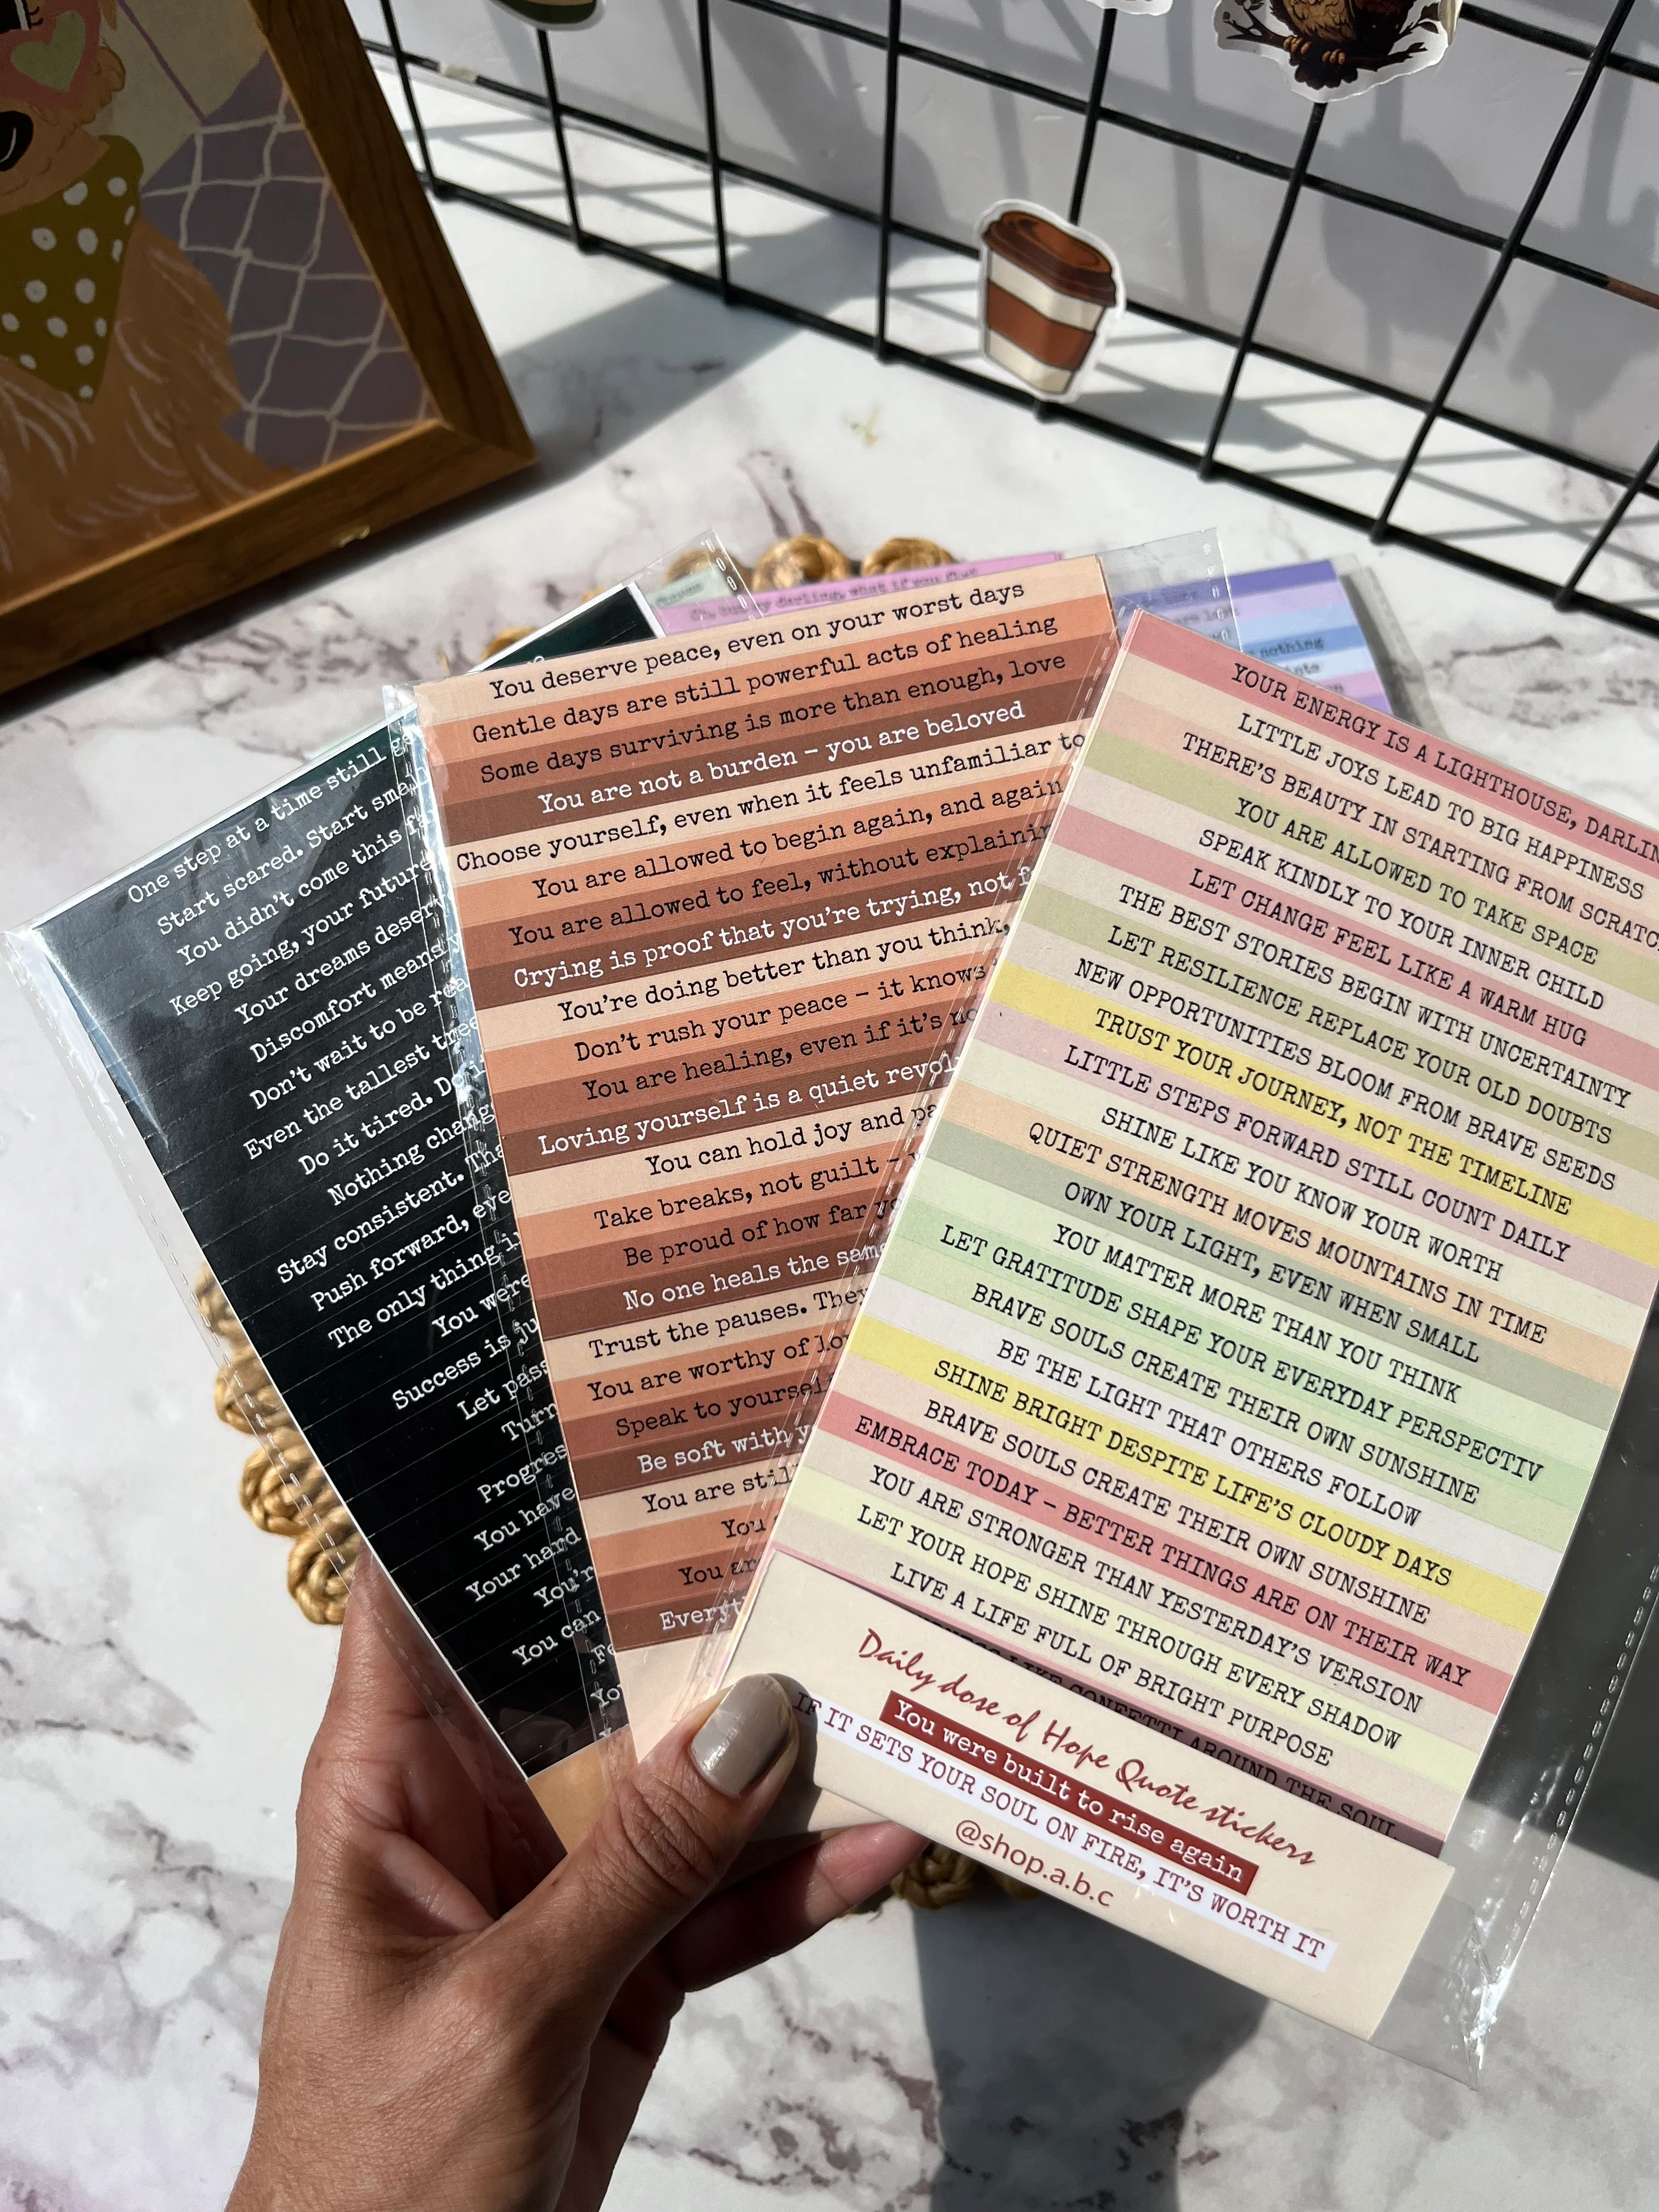 One step at a time still
Start scared. Start
You didn't come this
Keep going, your future
Your dreams
Discomfort means
Don't wait to be
Even the tallest
Do it tired.
Nothing
Stay consistent.
Push forward,
The only thing
You were
Success is
Let
You have
Your hand
You can
You deserve peace, even on your worst days
Gentle days are still powerful acts of healing
Some days surviving is more than enough, love
You are not a burden – you are beloved
Choose yourself, even when it feels unfamiliar to
You are allowed to begin again, and again
You are allowed to feel, without
Crying is proof that you're trying, not
You're doing better than you think,
Don't rush your peace – it knows
You are healing, even if it's
Loving yourself is a quiet
You can hold joy and
Take breaks, not guilt –
Be proud of how far
No one heals the
Trust the pauses.
You are worthy of
Speak to
Be soft with
You are
You
You
YOUR ENERGY IS A LIGHTHOUSE,
LITTLE JOYS LEAD TO BIG HAPPINESS
THERE'S BEAUTY IN STARTING FROM
YOU ARE ALLOWED TO TAKE SPACE
SPEAK KINDLY TO YOUR INNER CHILD
LET CHANGE FEEL LIKE A WARM HUG
THE BEST STORIES BEGIN WITH UNCERTAINTY
LET RESILIENCE REPLACE YOUR OLD DOUBTS
NEW OPPORTUNITIES BLOOM FROM BRAVE SEEDS
TRUST YOUR JOURNEY, NOT THE TIMELINE
LITTLE STEPS FORWARD STILL COUNT DAILY
SHINE LIKE YOU KNOW YOUR WORTH
QUIET STRENGTH MOVES MOUNTAINS IN TIME
OWN YOUR LIGHT, EVEN WHEN SMALL
YOU MATTER MORE THAN YOU THINK
LET GRATITUDE SHAPE YOUR EVERYDAY PERSPECTIV
BRAVE SOULS CREATE THEIR OWN SUNSHINE
BE THE LIGHT THAT OTHERS FOLLOW
SHINE BRIGHT DESPITE LIFE'S CLOUDY DAYS
BRAVE SOULS CREATE THEIR OWN SUNSHINE
EMBRACE TODAY – BETTER THINGS ARE ON THEIR WAY
YOU ARE STRONGER THAN YESTERDAY'S VERSION
LET YOUR HOPE SHINE THROUGH EVERY SHADOW
LIVE A LIFE FULL OF BRIGHT PURPOSE
LIKE CONFETTI AROUND THE SOUL
Daily dose of Hope Quote stickers
You were built to rise again
IF IT SETS YOUR SOUL ON FIRE, IT'S WORTH IT
@shop.a.b.c